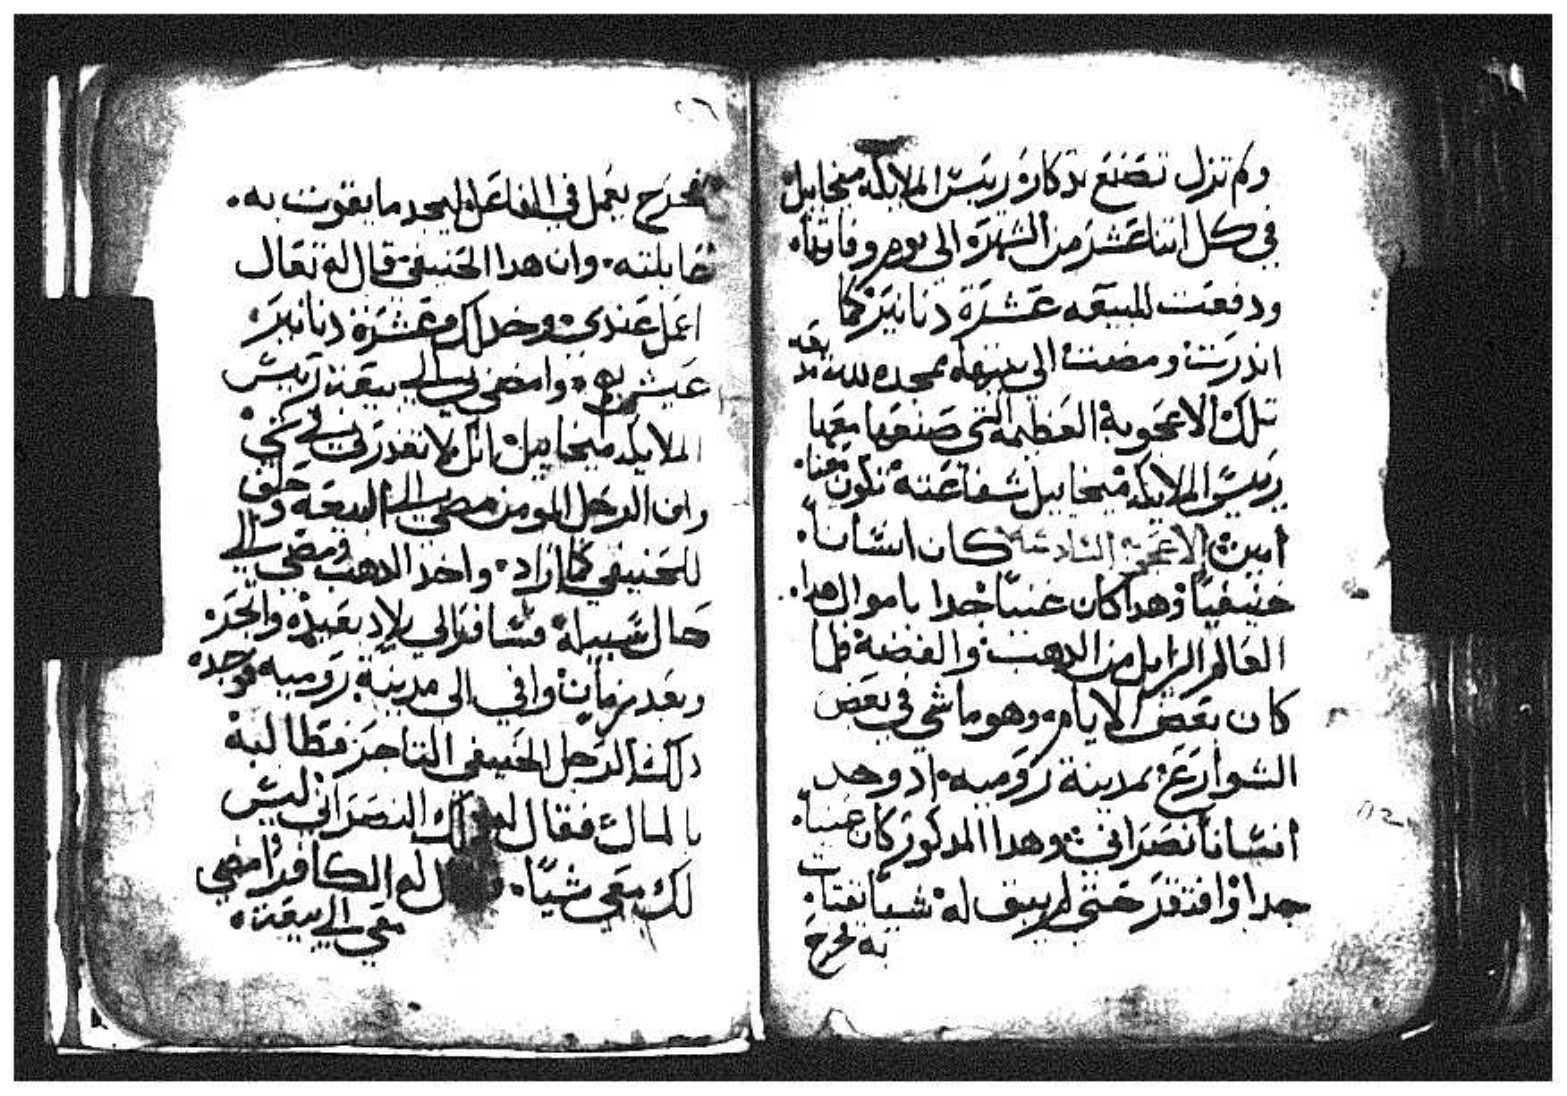 ولم تزل تصنع تدكار رييس الملايكه ميخاييل
في كل اتنا عشر من الشهر الي يوم وفاتها
ودفعت للبيعه عشرة دنانير كما
اندرت ومضت الي بيتها ممجده لله
تلك الاعجوبة العظيمه التي صنعها معها
رييس الملايكه ميخاييل شفاعته تكون معنا
امين الاعجوبة السادسة كان انسانا
حنيفيا وهدا كان غنيا جدا باموال هدا
العالم الزايل من الدهب والفضة فلما
كان بعض الايام وهو ماشي في بعض
الشوارع بمدينة روميه اد وجد
انسانا نصراني وهدا المدكور كان غنيا
جدا وافتقر حتي لم يبق له شيا يقتات
به فخرج
٢٦
فخرج يعمل في الفاعل ليجد ما يقوت به
عايلته وان هدا الحنيفي قال له تعال
اعمل عندي وخد لك عشرة دنانير
عيش بهم وامضي الي بيعة رييس
الملايكه ميخاييل
وان الرجل المومن مضي الي البيعه وحلف
للحنيفي كما اراد واخد الدهب ومضي الي
حال سبيله فسافر الي بلاد بعيده واتجر
وبعد زمان وافي الي مدينة روميه فوجده
دلك الرجل الحنيفي التاجر فطالبه
بالمال فقال له دلك النصراني ليس
لك معي شيا له الكافر امضي
معي الي بيعة